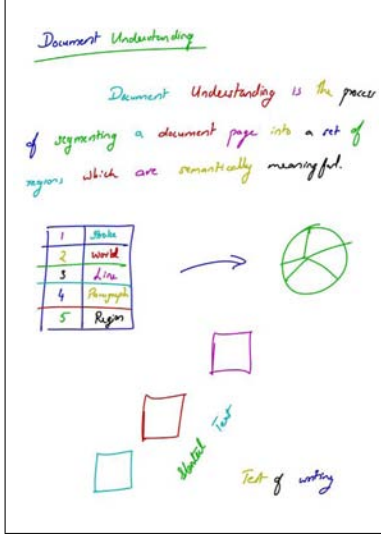 Document Understanding
Document Understanding is the process
of segmenting a document page into a set of
regions which are semantically meaningful.
1 Stroke
2 World
3 Line
4 Paragraph
5 Region
Slanted Text
Text of writing